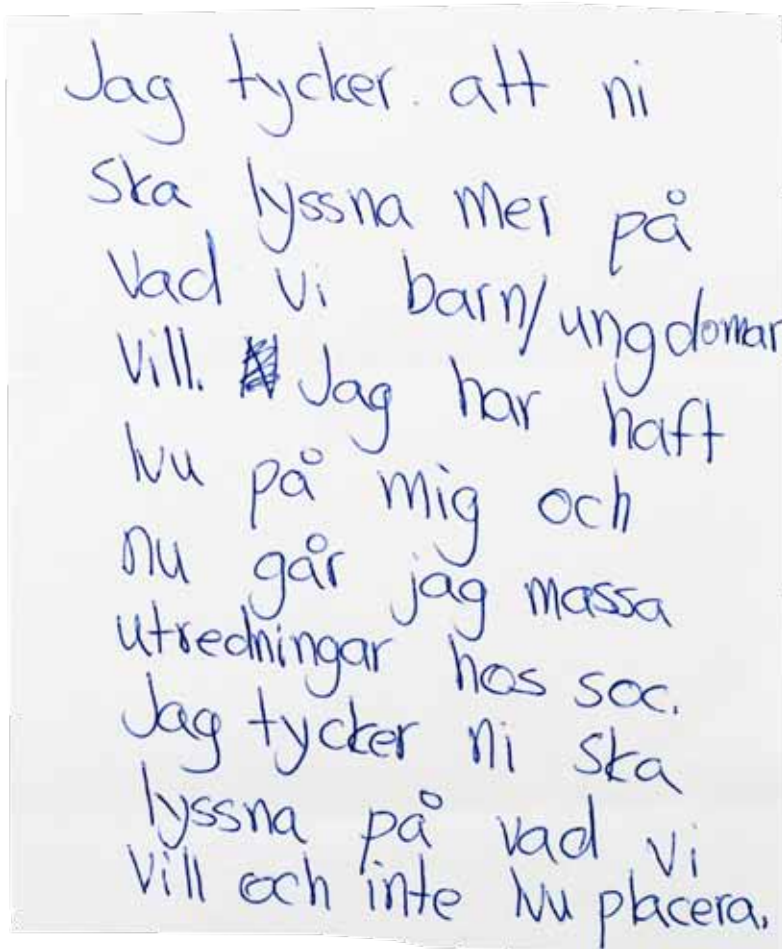 Jag tycker att ni
ska lyssna mer på
vad vi barn/ungdomar
vill. Jag har haft
lvu på mig och
nu går jag massa
utredningar hos soc.
Jag tycker ni ska
lyssna på vad vi
vill och inte lvu placera.